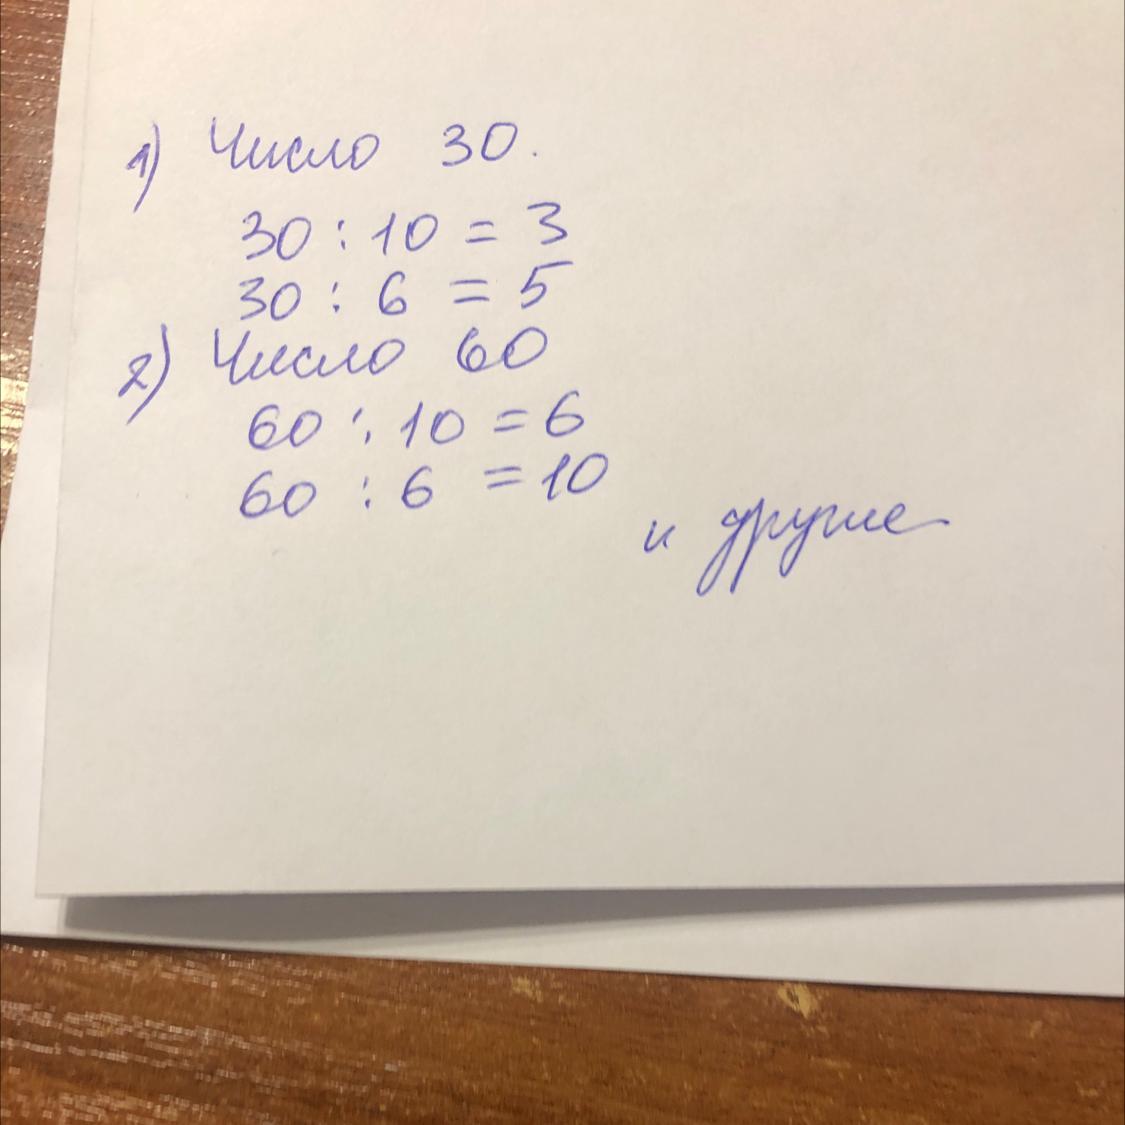 1) Число 30.
30 : 10 = 3
30 : 6 = 5
2) Число 60
60 : 10 = 6
60 : 6 = 10
и другие